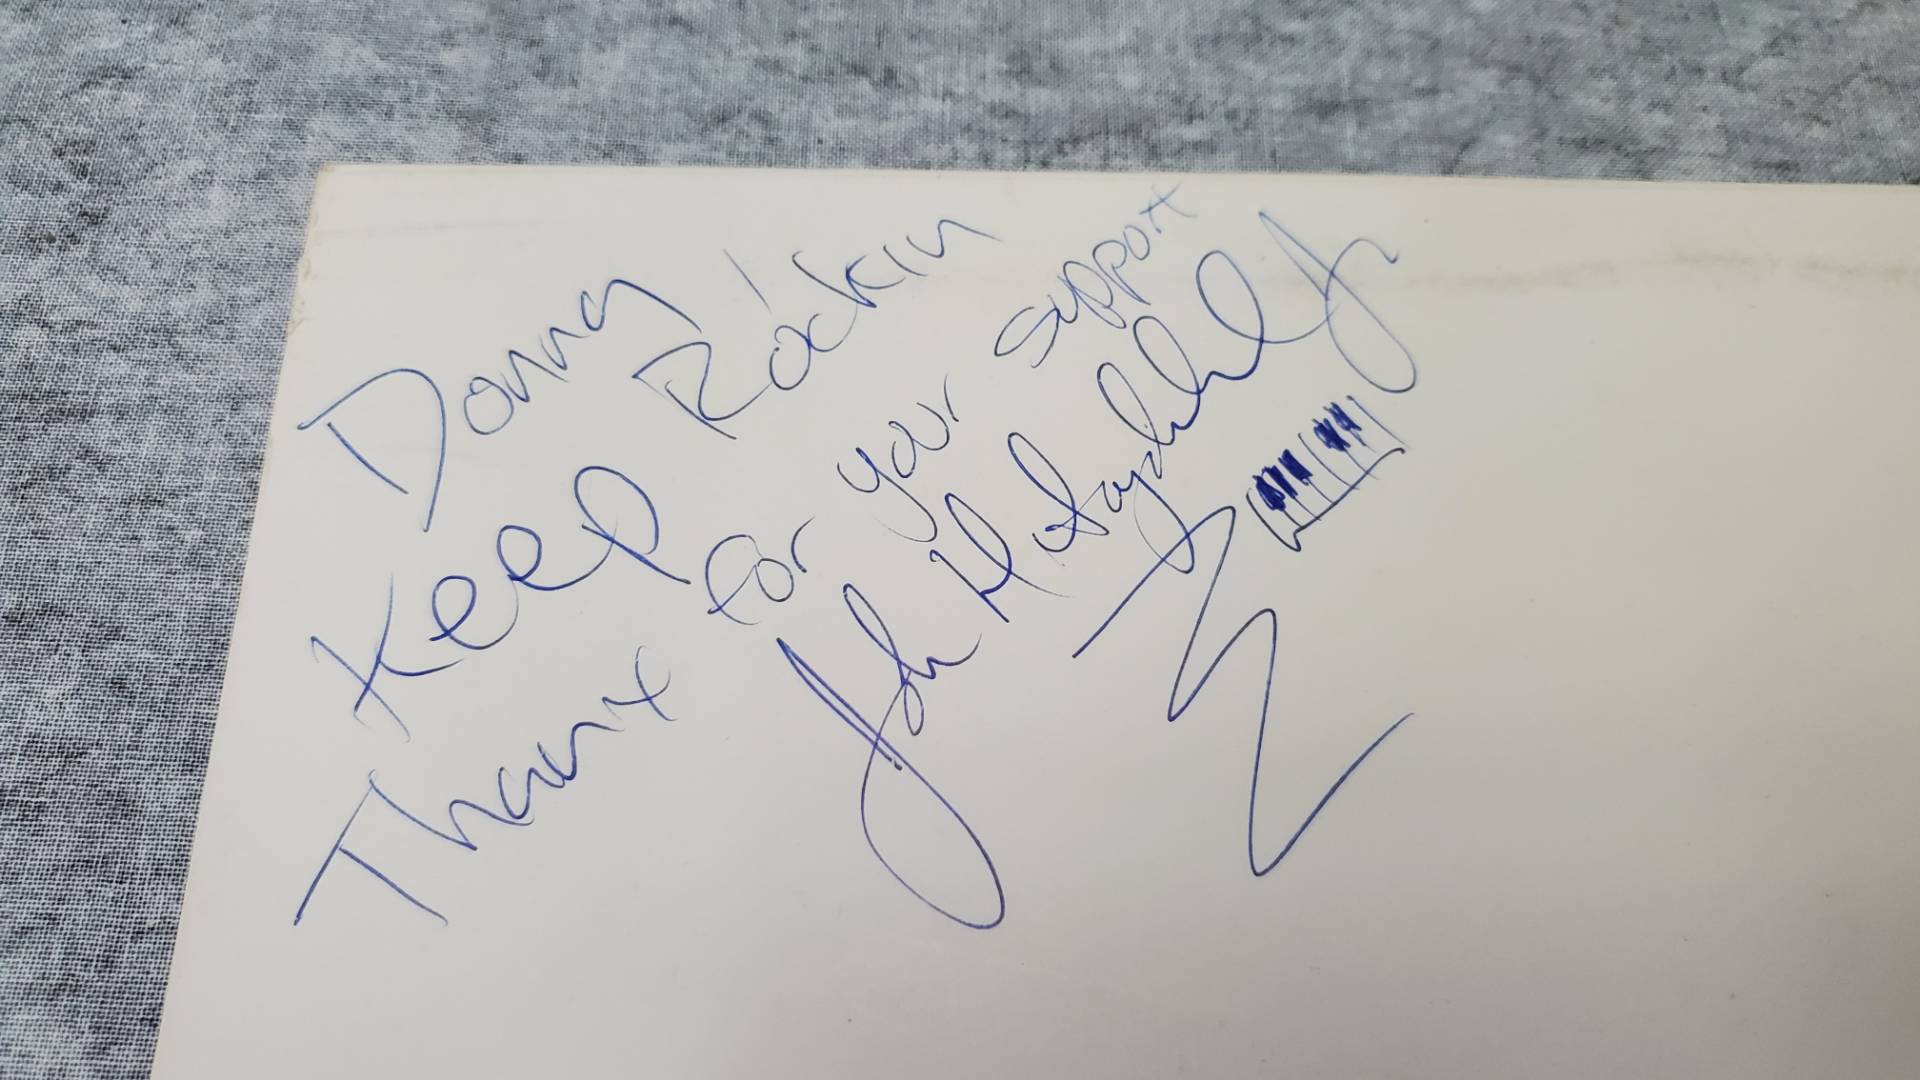 Donny
Keep Rockin'
Thanx for your support
John